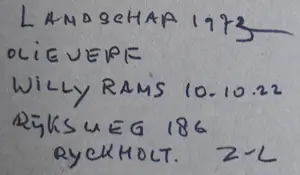 LANDSCHAP 1973
OLIEVERF
WILLY RAMS 10.10.22
RYKSWEG 186
RYCKHOLT. Z-L